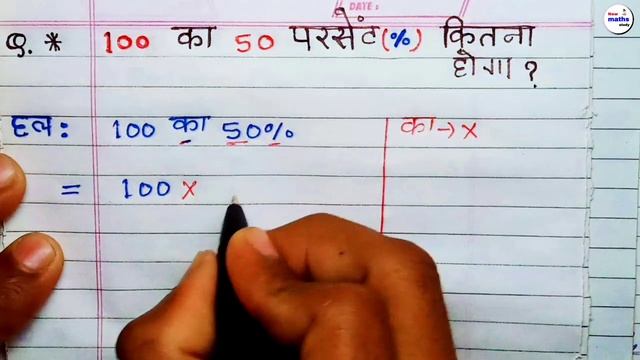 DATE:
New maths study
Q. * 100 का 50 परसेंट (%) कितना
होगा ?
हल : 100 का 50%
का → x
= 100 x